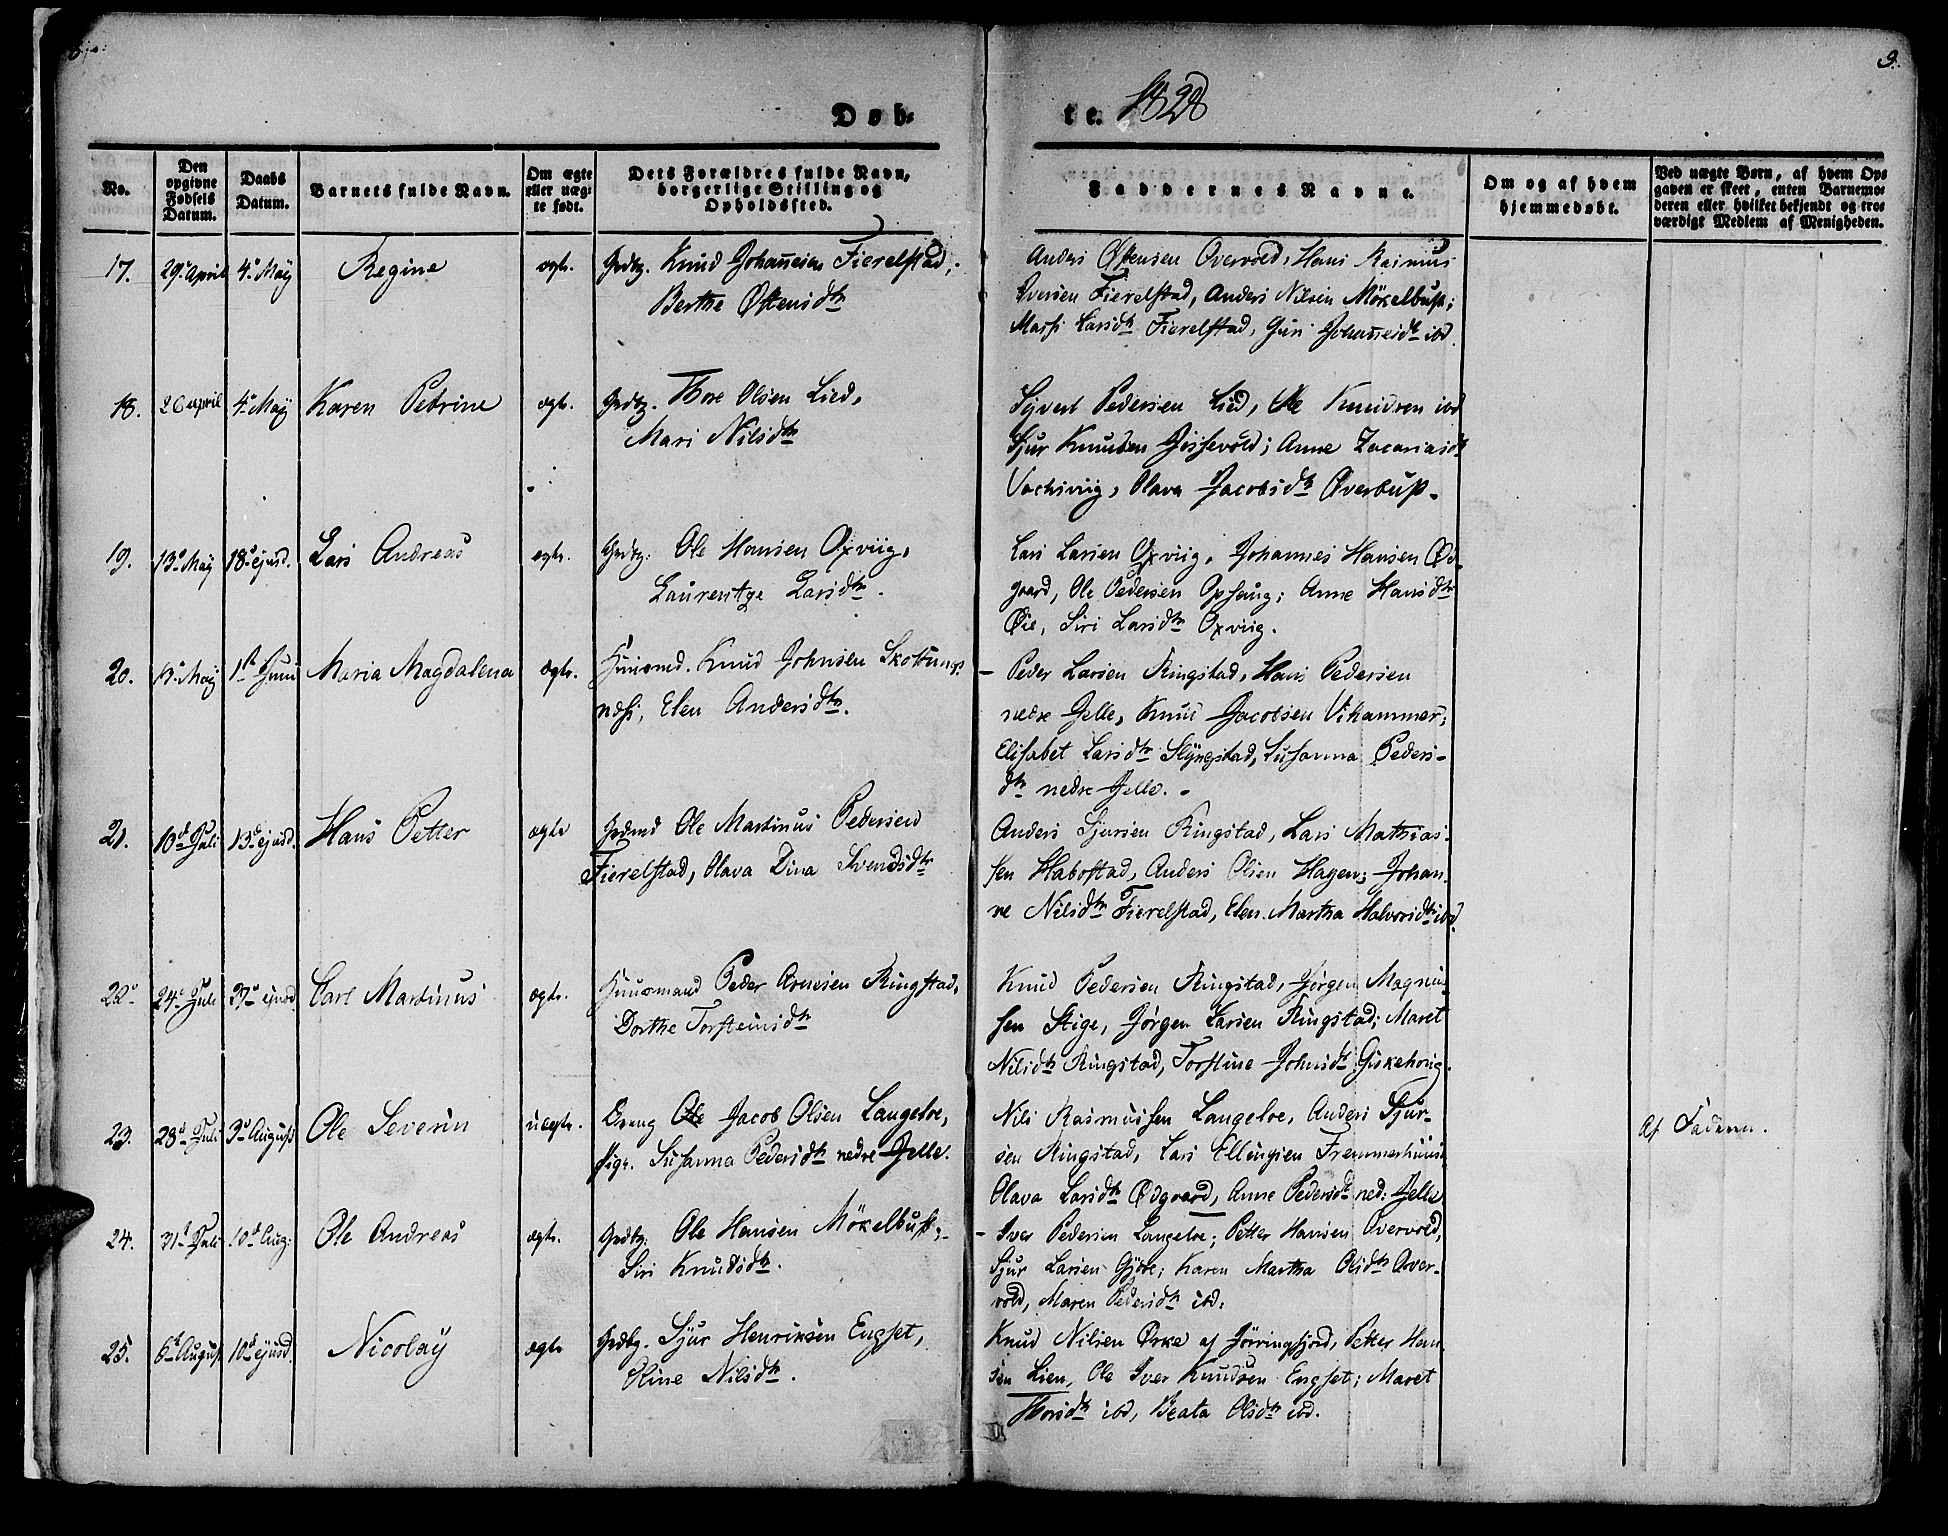 9.
Døb-
te. 1828
No.
Den opgivne Fødsels Datum.
Daabs Datum.
Barnets fulde Navn.
Om ægte eller uægte født.
Dets Forældres fulde Navn, borgerlige Stilling og Opholdssted.
Faddernes Navne.
Om og af hvem hjemmedøbt.
Ved uægte Børn, af hvem Opgaven er skeet, enten Barnemoderen eller hvilket bekjendt og troværdigt Medlem af Menigheden.
17. 29de April 4de Maÿ Regine ægte. Grdbg. Knud Johannesen Fierelstad,
Berthe Østensdtr
Anders Østensen Overvold, Hans Rasmus
Iversen Fierelstad, Anders Nilsen Mökelbust;
Larsdtr Fierelstad, Guri Johannesdtr ibd.
18. 26 April 4de Maÿ Karen Petrine ægte. Grdbg. Thore Olsen Lied,
Mari Nilsdtr
Syvert Pedersen Lied, Ole Knudsen ibd
Sjur Knudsen; Anne Zacariasdtr
Olava Jacobsdtr Øverbust.
19. 13de Maÿ 18de ejusd. Lars Andreas ægte. Grdbg. Ole Hansen Oxviig,
Larsdtr.
Lars Larsen Oxviig, Johannes Hansen Ød-
gaard, Ole Pedersen Ophaug; Anne Hansdtr
Øie, Siri Larsdtr Oxviig.
20. Maÿ 1ste Juni Maria Magdalena ægte. Huusmd. Knud Johnsen
Elen Andersdtr.
- Peder Larsen Ringstad, Hans Pedersen
nedre Jelle, Knud Jacobsen Vikhammer;
Elisabet Larsdtr Slÿngstad, Susanna Peders-
dtr nedre Jelle.
21. 10de Juli 13de ejusd. Hans Petter ægte Grdmd Ole Martinus Pedersen
Fierelstad, Olava Dina Svendsdtr
Anders Sjursen Ringstad, Lars Mathias-
sen Habostad, Anders Olsen Hagen; Johan-
ne Nilsdtr Fierelstad, Elen Martha Halvorsdtr ibd.
22. 24de Juli 27de ejusd Carl Martinus ægte. Huusmand Peder Arnesen Ringstad,
Dorthe Torsteinsdtr
Knud Pedersen Ringstad, Jørgen Magnus-
sen Stige, Jørgen Larsen Ringstad; Maret
Nilsdtr Ringstad, Torstine Johnsdtr
23. 28de Juli 3de August Ole Severin uægte. Jacob Olsen Langeloe,
Pige. Susanna Pedersdtr nedre Jelle.
Nils Rasmussen Langeloe, Anders Sjur-
sen Ringstad, Lars Ellingsen Fremmerhuus
Olava Larsdtr Ødgaard, Anne Pedersdtr ned: Jelle
Af Faderen.
24. 31te Juli 10de Aug: Ole Andreas ægte. Grdbg: Ole Hansen Mökelbust;
Siri Knudsdtr.
- Iver Pedersen Langeloe; Petter Hansen Overvold,
Sjur Larsen Gjöre; Karen Martha Olsdtr Over-
vold, Maren Pedersdtr ibd.
25. 6te August 10de ejusd. Nicolaÿ ægte Grdbg. Sjur Henriksen Engset,
Oline Nilsdtr.
Knud Nilsen Ørke af Jörringfjord, Petter Han-
sen Lien, Ole Iver Knudsen Engset; Maret
Thorsdtr ibd, Beata Olsdtr ibd.